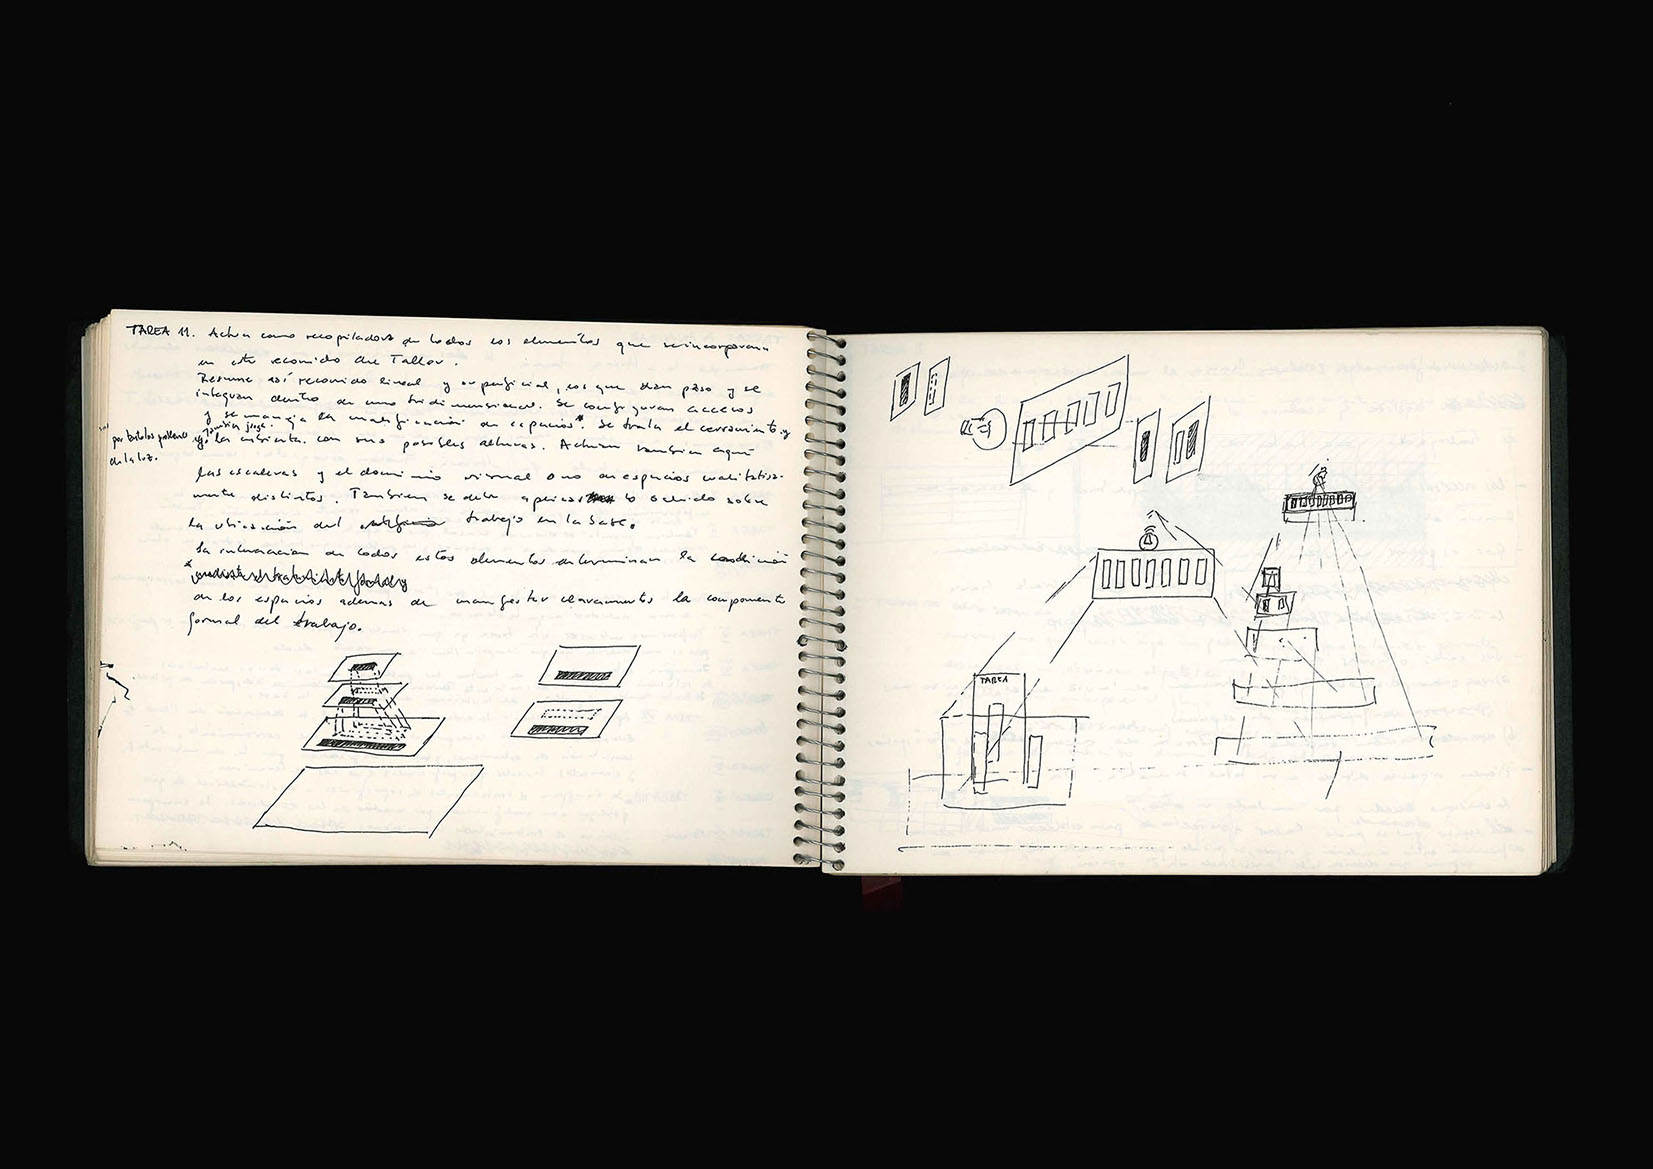 TAREA 11. Actua como recopiladora de todos los elementos que se incorporan
en este recorrido del Taller.
Resume así recorrido lineal y superficial, los que dan paso y se
integran dentro de uno tridimensional. Se configuran accesos
y se maneja la cualificación de espacios*. Se trata el cerramiento y
también juega.
y la cubierta con sus posibles alturas. Actuan tambien aqui
por tanto los problemas
de la luz.
las escaleras y el dominio visual o no de espacios cualitativa-
mente distintos. Tambien se debe aplicar lo sabido sobre
la ubicación del trabajo en la base.
La interacción de todos estos elementos determinan la condición
*
de los espacios ademas de manifestar claramente la componente
formal del trabajo.
TAREA